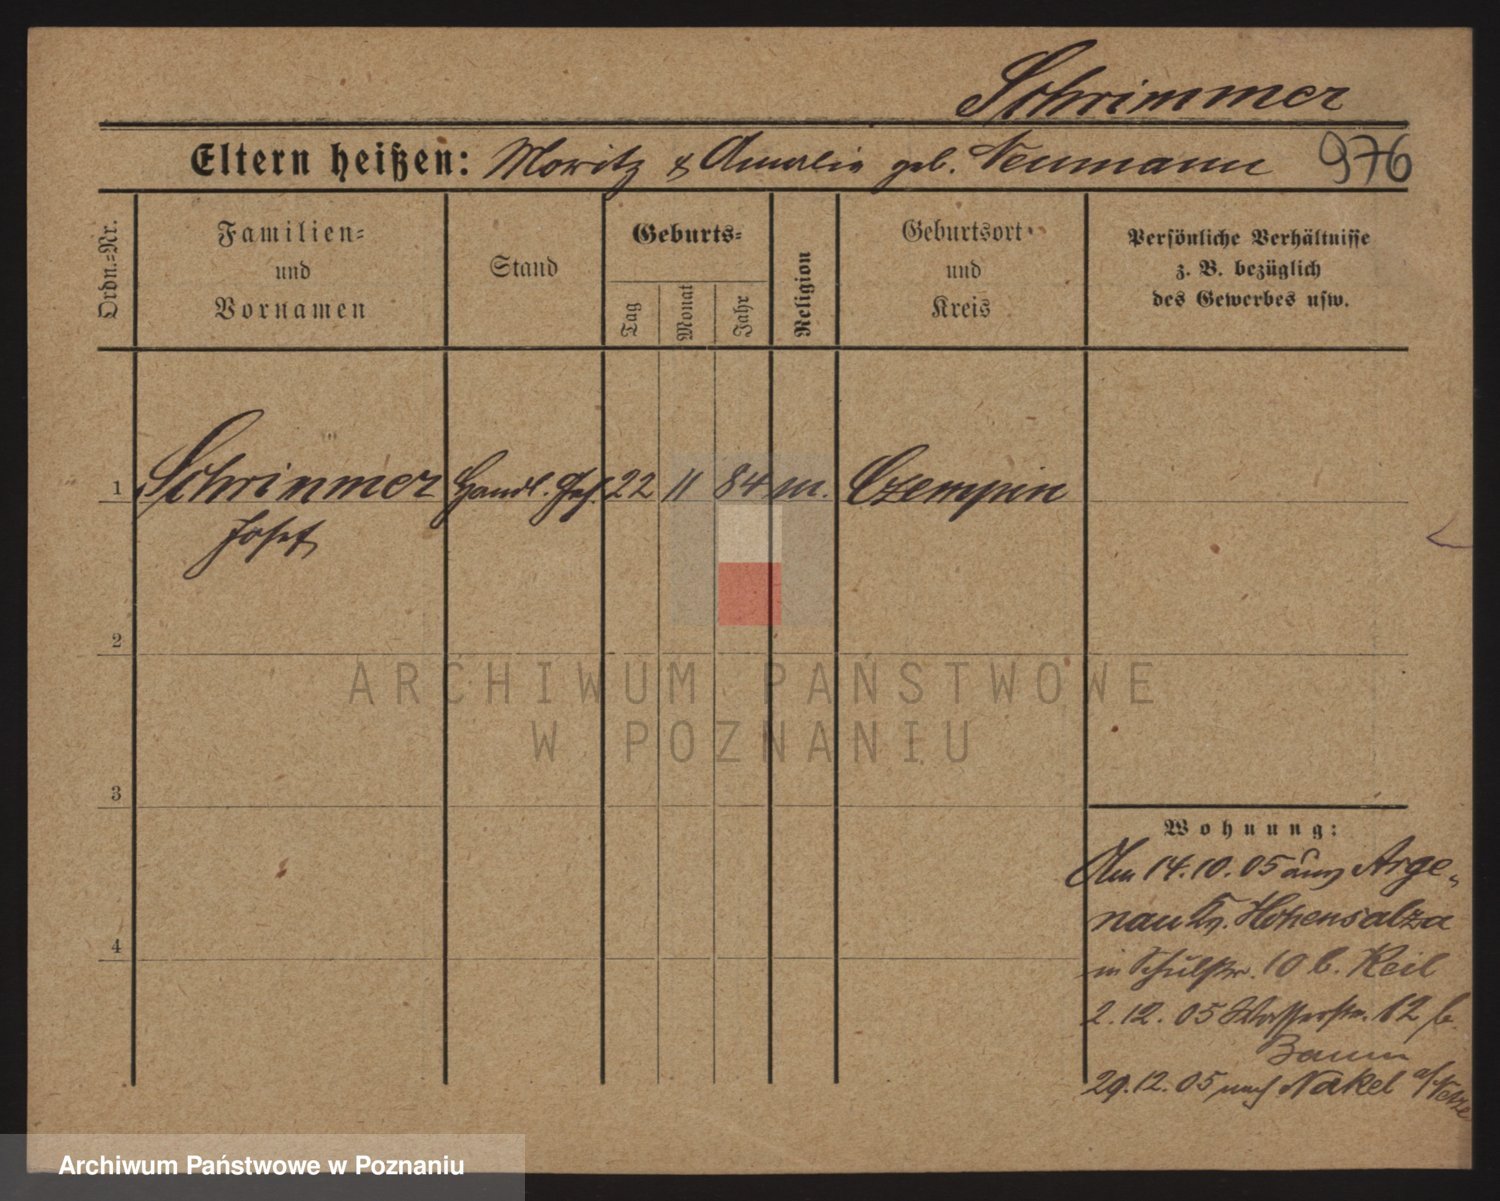 Schrimmer
Eltern heißen: Moritz & Amalie geb. Neumann 976
Ordn.=Nr.
Familien=
und
Vornamen
Stand
Geburts=
Tag
Monat
Jahr
Religion
Geburtsort
und
Kreis
Persönliche Verhältnisse
z. B. bezüglich
des Gewerbes usw.
1 Schrimmer Handl. Geh. 22 11 84 m. Czempin
Josef
2
3
4
ARCHIWUM PAŃSTWOWE
W POZNANIU
Wohnung:
Am 14.10.05 aus Arge-
nau Kr. Hohensalza
in Schulstr. 10 b. Keil
2.12.05 Wasserstr. 12 b.
Baum
29.12.05 nach Nakel a/Netze
Archiwum Państwowe w Poznaniu